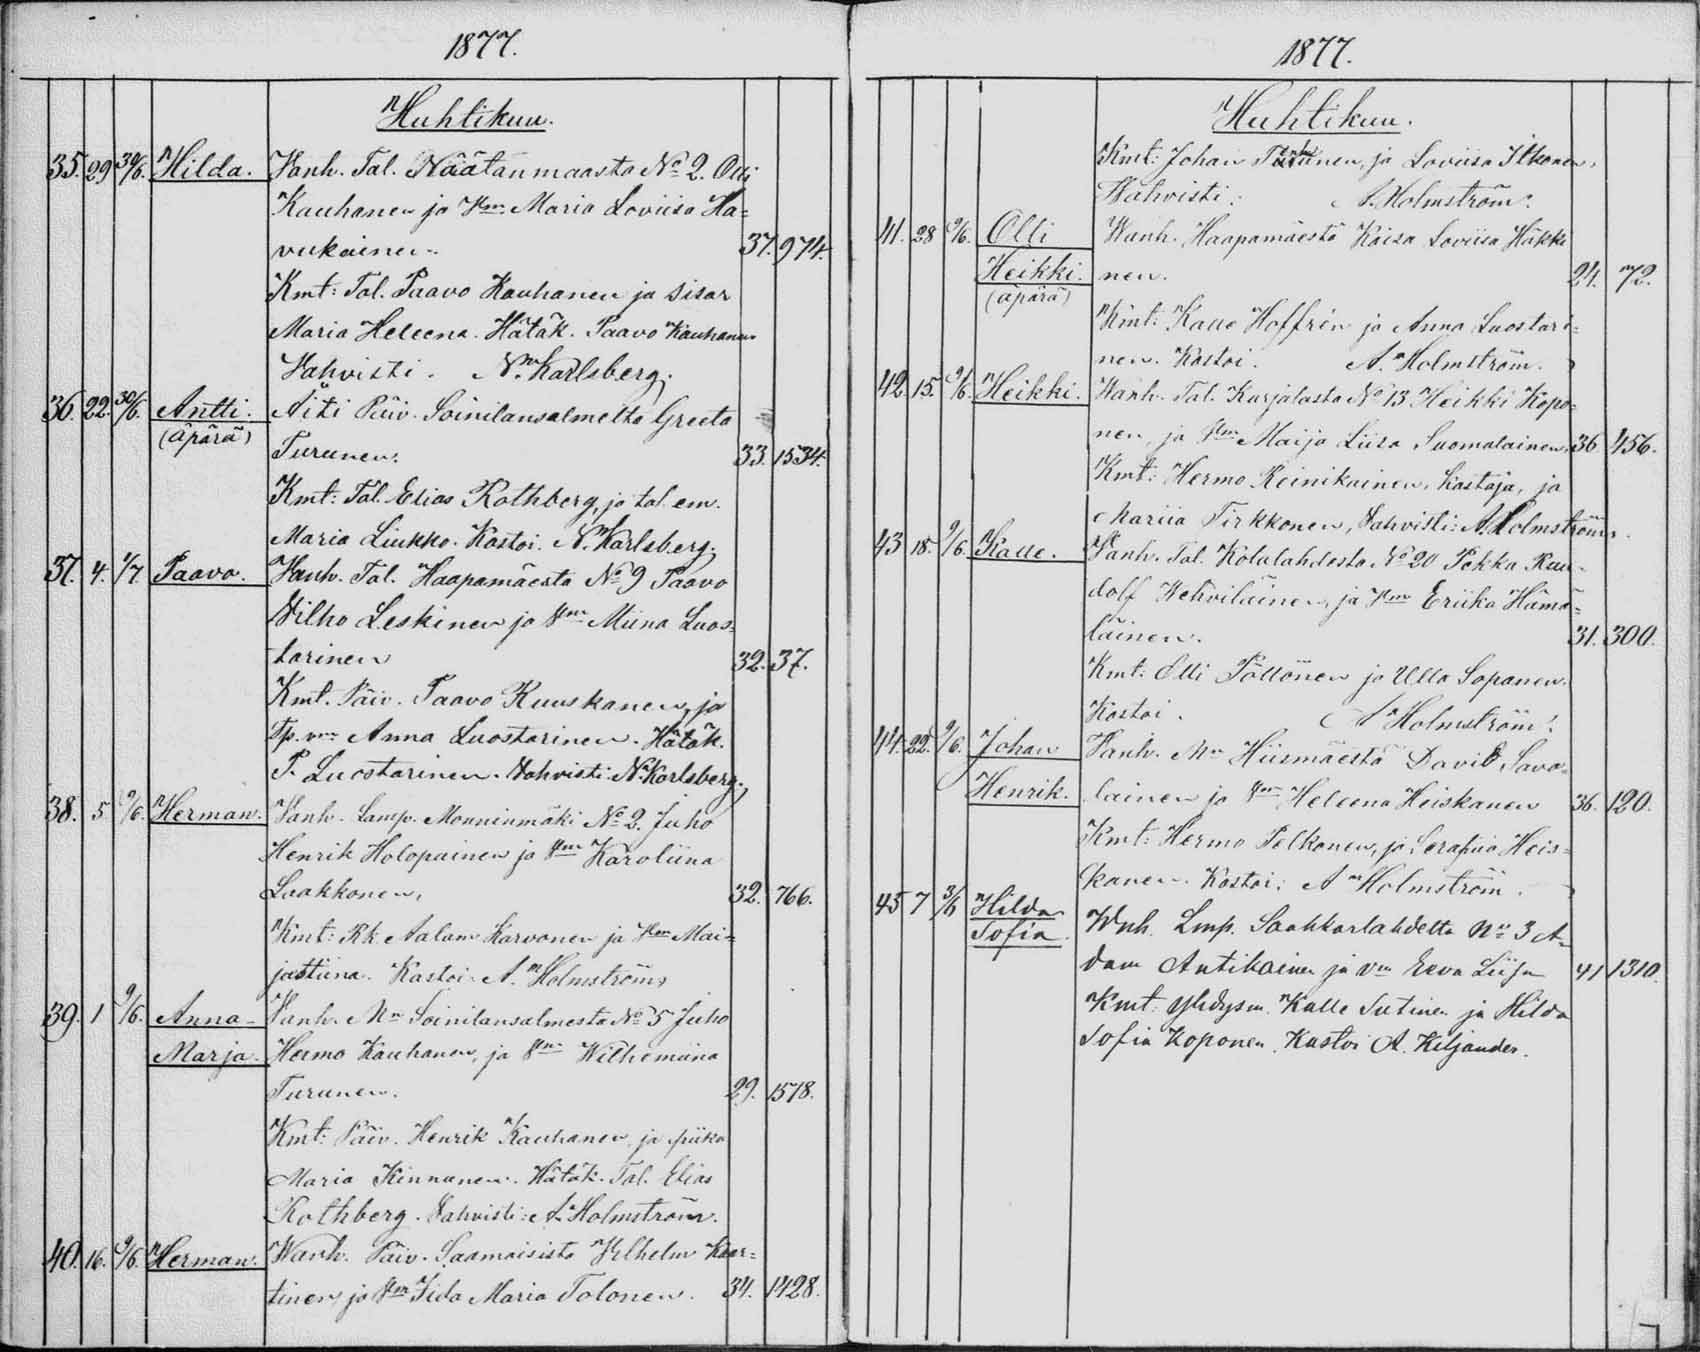 1877.
Huhtikuu.
35. 29 30/6. Hilda. Vanh. Tal. Näätänmaasta No 2. Olli
Kauhanen ja Vm Maria Loviisa Ha=
vukainen. 37. 974.
Kmt: Tal. Paavo Kauhanen ja sisar
Maria Heleena. Hätäk. Paavo Kauhanen
Vahvisti. N. Karlsberg.
36. 22. 30/6. Antti. Äiti Päiv. Soinilansalmelta Greeta
(äpärä) Turunen. 33. 1534.
Kmt: Tal. Elias Rothberg, ja tal. em.
Maria Liukko. Kastoi. N. Karlsberg.
37. 4. 1/7 Paavo. Vanh. Tal. Haapamäestä No 9 Paavo
Vilho Leskinen ja Vm Miina Luos=
tarinen 32. 37.
Kmt. Päiv. Paavo Ruuskanen, ja
Tp. vm Anna Luostarinen. Hätäk.
P. Luostarinen. Vahvisti: N. Karlsberg.
38. 5 9/6. Herman. Vanh. Lamp. Monninmäki No 2. Juho
Henrik Holopainen ja Vm Karoliina
Laakkonen. 32. 766.
Kmt: Rk. Aalam Karvonen ja Vm Mai=
jastiina. Kastoi A. Holmström.
39. 1 9/6. Anna- Vanh. Mn Soinilansalmesta No 5 Juho
Marja. Hermo Kauhanen, ja Vm Wilhemiina
Turunen. 29. 1578.
Kmt: Päiv. Henrik Kauhanen, ja piika
Maria Kinnunen. Hätäk. Tal. Elias
Rothberg. Vahvisti: A. Holmström.
40. 16. 9/6. Herman. Wanh. Päiv. Saamaisista Vilhelm Kaar=
tinen, ja Vm Iida Maria Tolonen. 34. 1428.
1877.
Huhtikuu.
Kmt: Johan ja Loviisa Itkonen.
Wahvisti: A. Holmström.
41. 28 9/6. Olli Wanh. Haapamäestä Kaisa Loviisa Häkki
Heikki. nen. 24. 72.
(äpärä)
Kmt: Kalle Hoffrén ja Anna Luostari=
nen. Kastoi. A. Holmström.
42. 15. 9/6. Heikki. Wanh. Tal. Karjalasta No 13 Heikki Kopo=
nen, ja Vm Maija Liisa Suomalainen. 36 456.
Kmt: Hermo Reinikainen, kastaja, ja
Mariia Tirkkonen, Vahvisti: A. Holmström.
43 18. 9/6. Kalle. Vanh. Tal. Kolulahdesta No 20 Pekka Ruu-
dolf Wehviläinen, ja Vm Eriika Hämä=
läinen. 31. 300.
Kmt: Olli Pöllönen ja Ulla Sopanen.
Kastoi. A Holmström.
44. 22. 9/6. Johan Vanh. Mn Hiismäestä David Savo=
Henrik. lainen ja Vm Heleena Heiskanen 36. 120.
Kmt: Hermo Pelkonen, ja Serafiia Heis=
kanen. Kastoi: A Holmström.
45 7 3/6 Hilda Wnh. Lmp. Saahkarlahdelta No 3 A=
Sofia. dam Antikainen ja vm Eeva Liisa 41 1310.
Kmt: Yhdysm. Kalle Sutinen ja Hilda
Sofia Koponen. Kastoi A. Kiljander.